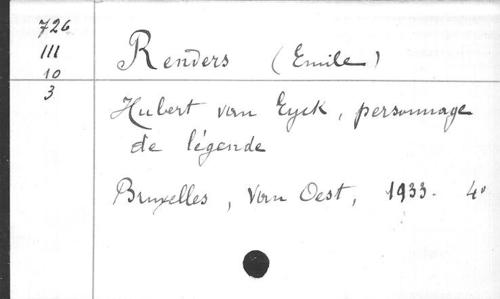 726
III
10
3
Renders (Emile)
Hubert van Eyck, personnage
de légende
Bruxelles, Van Oest, 1933. 4°